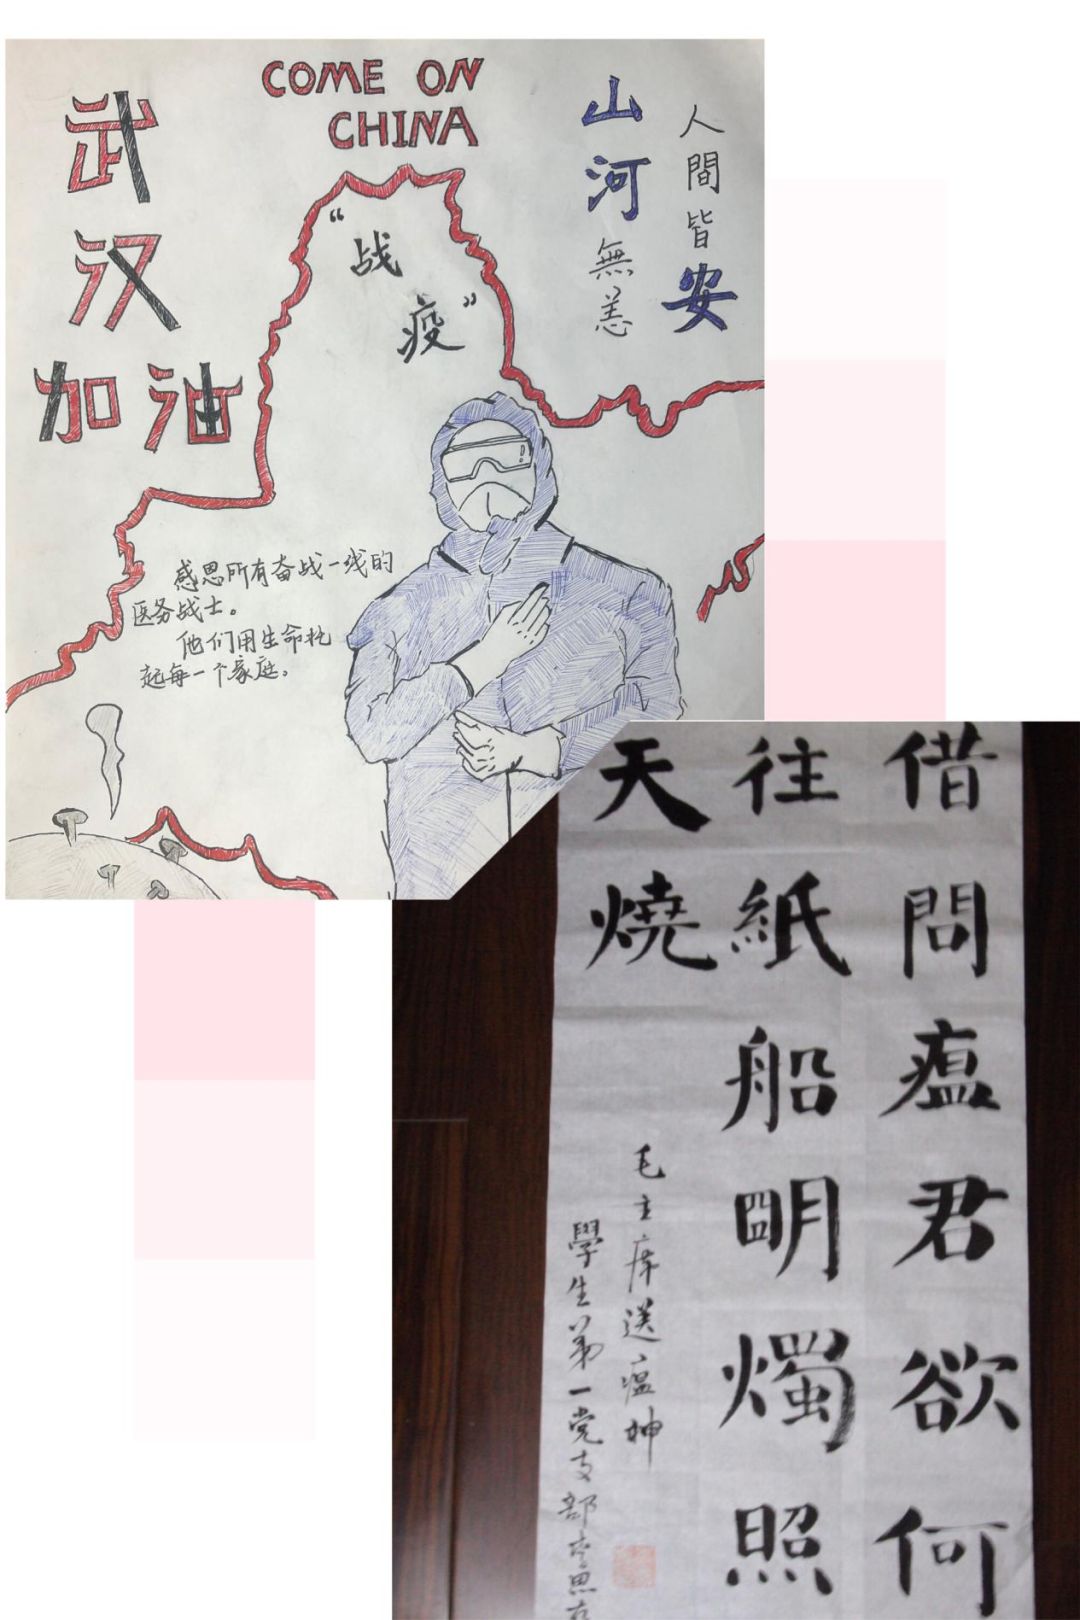 武
汉
加油
COME ON
CHINA
“战
疫”
山河無恙
人間皆安
感恩所有奋战一线的
医务战士。
他们用生命托
起每一个家庭。
借問瘟君欲何
往紙船明燭照
天燒
毛主席送瘟神
學生第一党支部李思